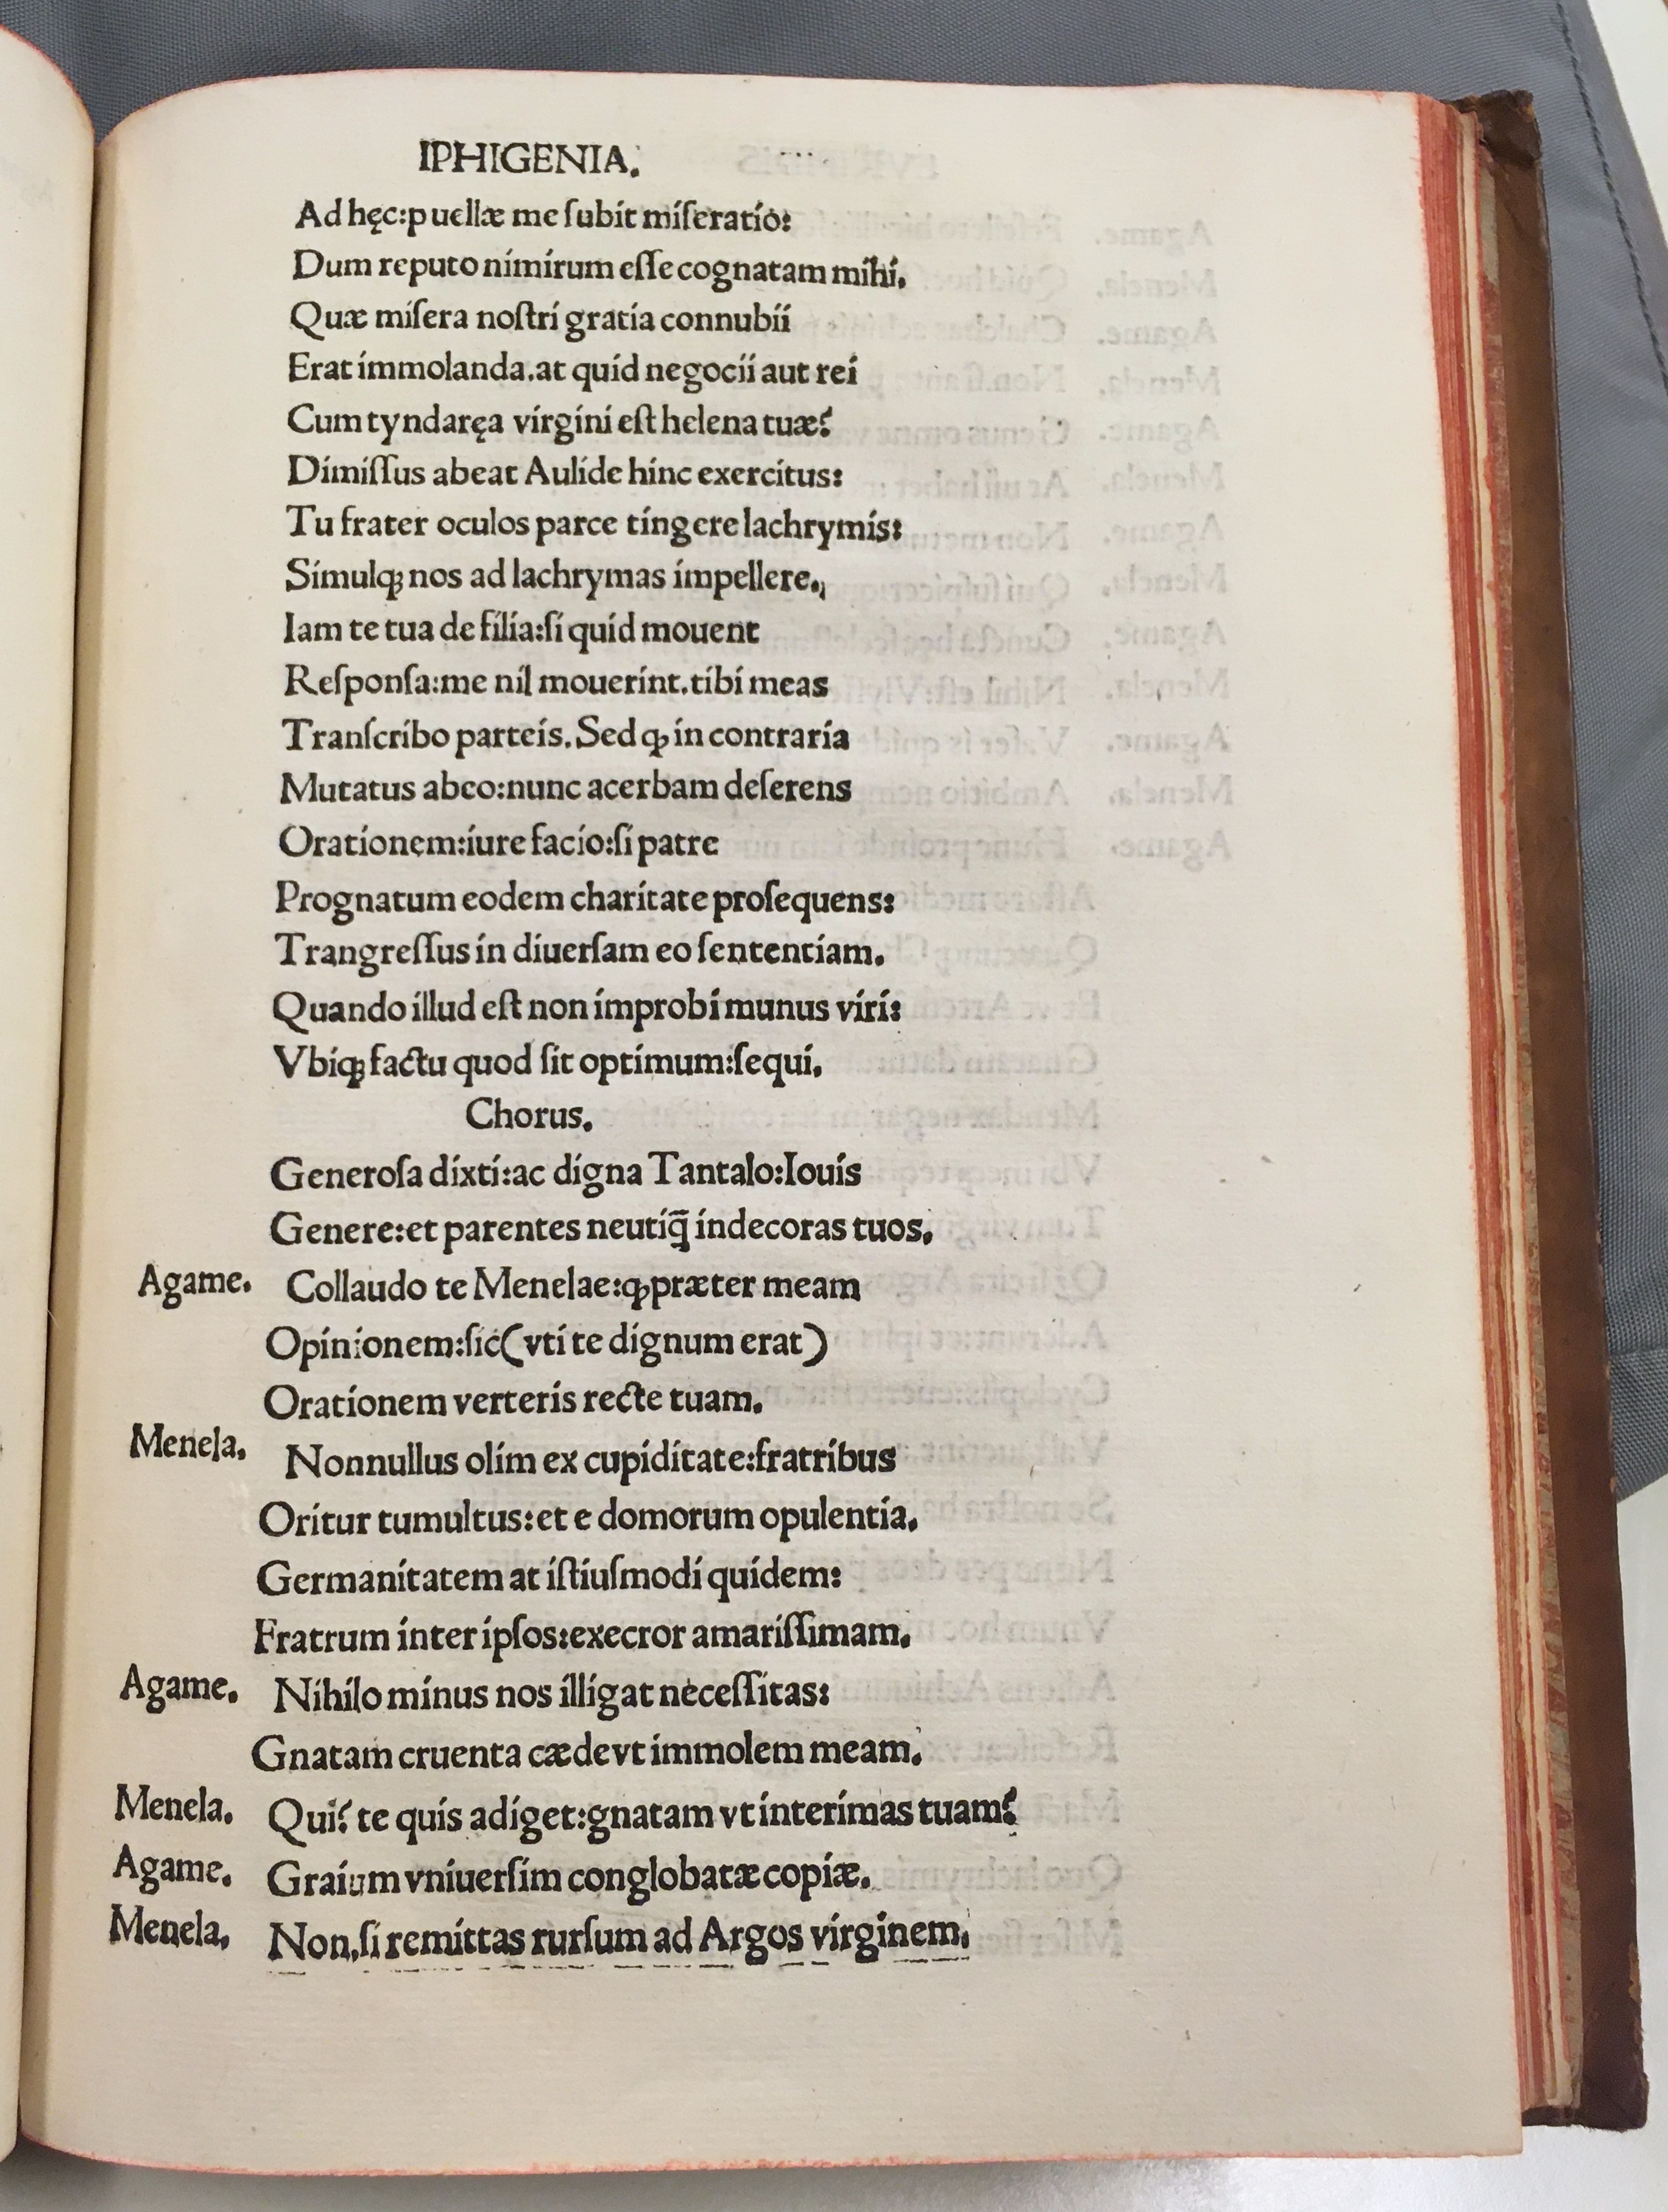 IPHIGENIA.
Ad hęc:puellæ me ſubit miſeratio:
Dum reputo nimirum eſſe cognatam mihi.
Quæ miſera noſtri gratia connubii
Erat immolanda.at quid negocii aut rei
Cum tyndaręa virgini eſt helena tuæ?
Dimiſſus abeat Aulide hinc exercitus:
Tu frater oculos parce tingere lachrymis:
Simulqꝫ nos ad lachrymas impellere.
Iam te tua de filia:ſi quid mouent
Reſponſa:me nil mouerint.tibi meas
Tranſcribo parteis.Sed ꝙ in contraria
Mutatus abeo:nunc acerbam deſerens
Orationem:iure facio:ſi patre
Prognatum eodem charitate proſequens:
Trangreſſus in diuerſam eo ſententiam.
Quando illud eſt non improbi munus viri:
Vbiqꝫ factu quod ſit optimum:ſequi.
Chorus.
Generoſa dixti:ac digna Tantalo:Iouis
Genere:et parentes neutiq̄ indecoras tuos.
Agame. Collaudo te Menelae:ꝙ præter meam
Opinionem:ſic(vti te dignum erat)
Orationem verteris recte tuam.
Menela. Nonnullus olim ex cupiditate:fratribus
Oritur tumultus:et e domorum opulentia.
Germanitatem at iſtiuſmodi quidem:
Fratrum inter ipſos:execror amariſſimam.
Agame. Nihilo minus nos illigat neceſſitas:
Gnatam cruenta cæde vt immolem meam.
Menela. Qui? te quis adiget:gnatam vt interimas tuam?
Agame. Graium vniuerſim conglobatæ copiæ.
Menela. Non.ſi remittas rurſum ad Argos virginem.